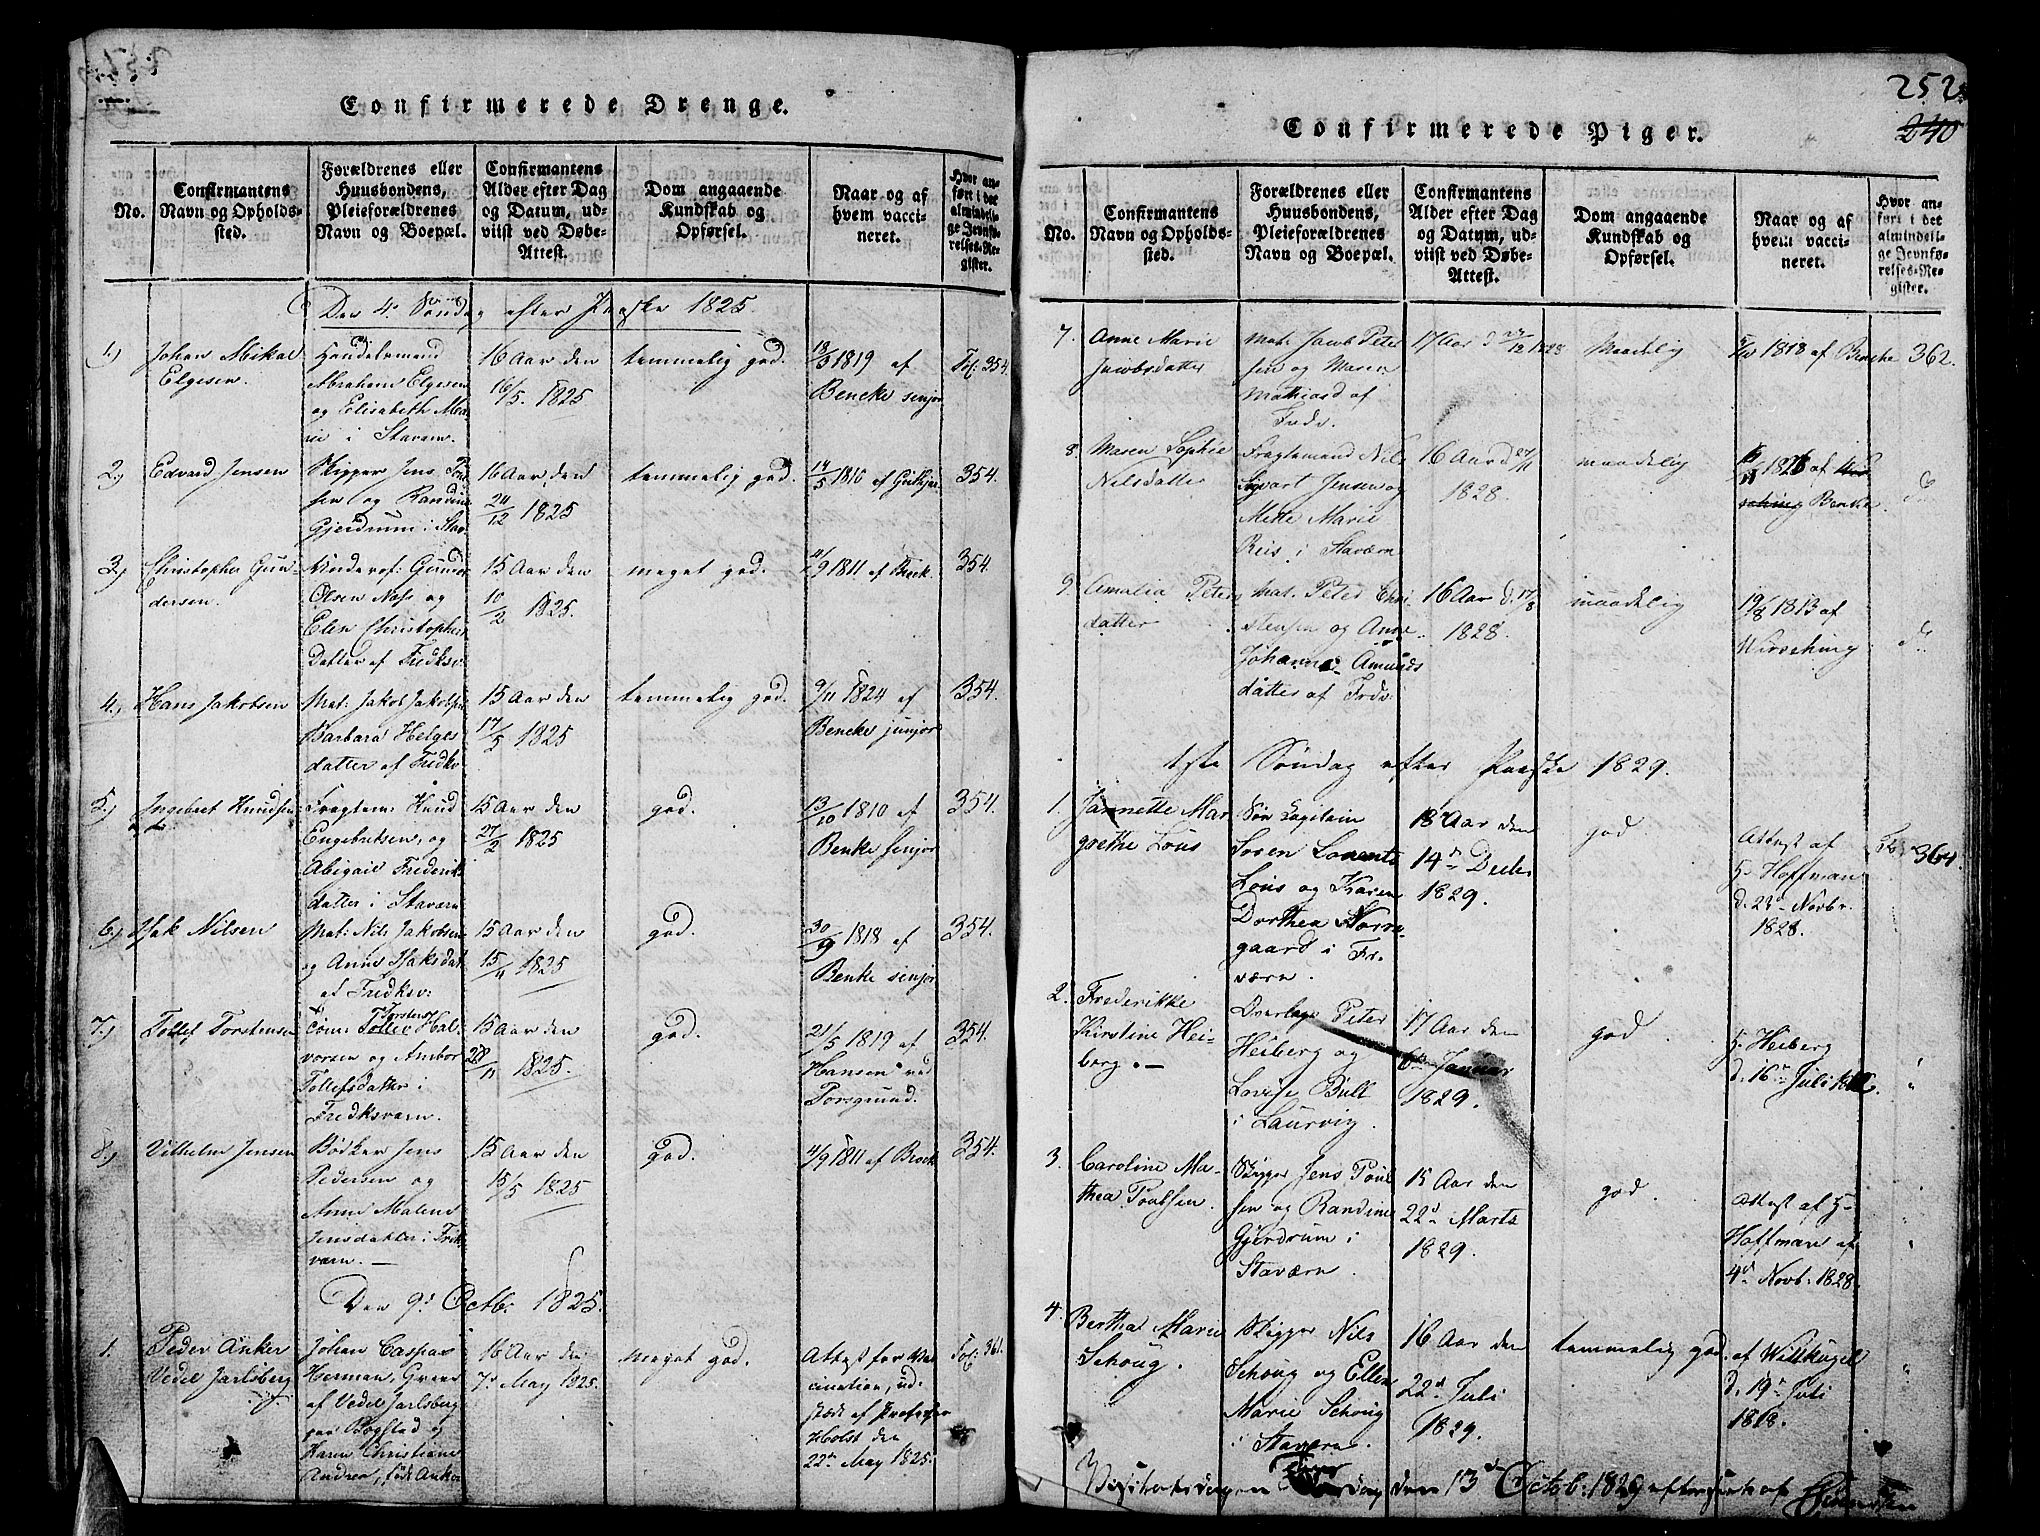 Confirmerede Drenge.
No.
Confirmantens
Navn og Opholds-
sted.
Forældrenes eller
Huusbondens,
Pleieforældrenes
Navn og Boepæl.
Confirmantens
Alder efter Dag
og Datum, ud-
viist ved Døbe-
Attest.
Dom angaaende
Kundskab og
Opførsel.
Naar og af
hvem vacci-
neret.
Hvor an-
ført i det
almindeli-
ge Jevnfø-
relses-Re-
gister.
Den 4. Søndag efter Paaske 1825.
1.)
Johan Mikal
Elgesen.
Handelsmand
Abraham Elgesen
og Elisabeth Ma-
rie i Stavern.
16 Aar den
16/5. 1825
temmelig god.
1819 af
Bencke senjor
Fol: 354.
2.)
Edvard Jensen
Skipper Jens
sen og Randine
Gjerdrum i Stav
16 Aar den
24/12 1825
temmelig god.
14/5 1810 af
354.
3.)
Christopher Gun-
dersen.
Underof: Gunder
Olsen Næss og
Elen Christophers
Datter af Fredksv.
15 Aar den
10/2 1825.
meget god.
4/9 1811 af Brock.
354.
4.)
Hans Jakobsen
Mat: Jakob Jakobsen
Barbara Helges
datter af Fredksv
15 Aar den
17/5 1825
temmelig god.
9/11 1824 af
Bencke junjor
354.
5.)
Ingebret Knudsen
Fragtem: Knud
Engebretsen, og
Abigael Frederik
datter i Staværn
15 Aar den
27/2 1825
god.
13/10 1810 af
Benke senjor
354.
6.)
Isak Nilsen
Mat: Nils Jakobsen
og Anne Isaksdat
af Fredksv:
15 Aar den
15/4 1825
god.
1818 af
Benke senjor
354.
7.)
Tollef Torstensen
Torsten
Tømm: Tollef Hal-
vorsen og Ambor
Tollefsdatter i
Fredksværn.
15 Aar den
28/11 1825.
god.
21/5 1819 af
Hansen ved
Porsgrund.
354.
8.)
Vilhelm Jensen
Bødker Jens
Pedersen og
Anne Malene
Jensdatter i Frk
værn. —
15 Aar den
15/5 1825
god.
4/9 1811 af Brock
354.
Den 9. Octbr. 1825.
1.
Peder Anker
Vedel Jarlsberg
Johan Caspar
Herman, Grev
af Vedel Jarlsberg
paa Bogstad og
Karen Christiane
Andrea, født Anker
16 Aar den
7 May 1825.
meget god.
Attest for Vac
cination, ud-
stædt af Professor
Holst den
22n May 1825.
Fol: 361.
252
240
Confirmerede Piger.
No.
Confirmantens
Navn og Opholds-
sted.
Forældrenes eller
Huusbondens,
Pleieforældrenes
Navn og Boepæl.
Confirmantens
Alder efter Dag
og Datum, ud-
viist ved Døbe-
Attest.
Dom angaaende
Kundskab og
Opførsel.
Naar og af
hvem vacci-
neret.
Hvor an-
ført i det
almindeli-
ge Jevnfø-
relses-Re-
gister.
7.
Anne Marie
Jacobsdatter
Mat. Jacob Peter
sen og Maren
Mathiasd af
Frdv.
17 Aar d 1828
Maadelig
1818 af Bencke
362.
8.
Maren Sophie
Nilsdatter
Fragtemand Nils
Syvert Jensen og
Mette Marie
Reis i Staværn
16 Aar d 27/11
1828.
maadelig
af
Bencke.
do
9.
Amalia Peters
datter
Mat. Peter Chri-
stensen og Anne
Johanne Amunds
datter af Frdv.
16 Aar d. 17/8
1828.
maadelig
19/8 1813 af
Wirsching
do
1ste Søndag efter Paaske 1829.
1.
Jannette Mar
grethe Lous
Søe Capitain
Søren Lorents
Lous og Karen
Dorthea Norre-
gaard i Fr.
værn.
18 Aar den
14d Decbr
1829.
god
Attest af
Hoffman
d. 23d Novbr.
1828.
Fol 364.
2.
Frederikke
Kirstine Hei-
berg. —
Overlæge Peter
Heiberg og
Lovise Bull
i Laurvig.
17 Aar den
6te Januar
1829.
god
Heiberg
d. 16 Juli
"
3.
Caroline Ma-
thea Poulsen.
Skipper Jens Poul
sen og Randine
Gjerdrum i
Staværn.
15 Aar den
22d Marts
1829.
god.
Attest af
Hoffman af
4d Novb: 1828.
"
4.
Berthe Marie
Schoug.
Skipper Nils
Schoug og Ellen
Marie Schoug
i Staværn.
16 Aar den
22d Juli
1829.
temmelig god.
af Wittkugel
d. 19 Juli
1818.
"
Visitatsdagen den 13d Octob: 1829 efterseet af